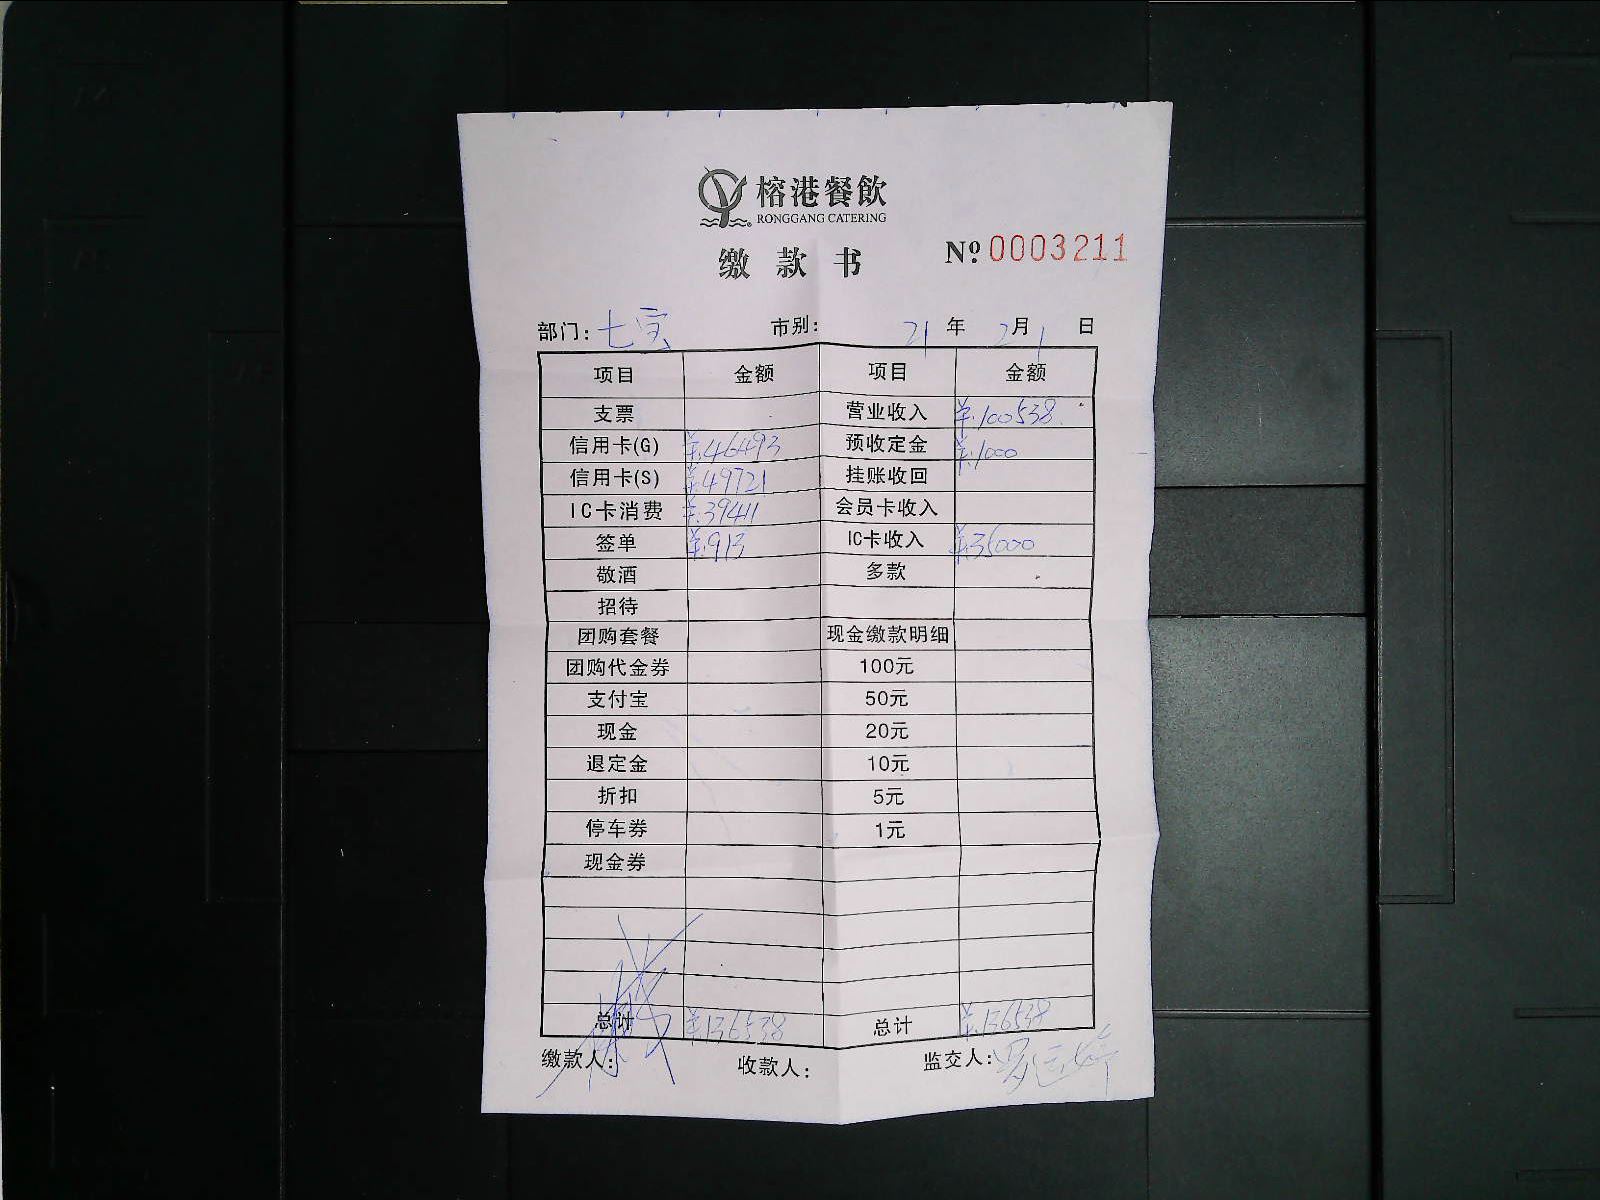 榕港餐飲
RONGGANG CATERING
缴款书 Nº 0003211
部门: 七宝 市别: 21 年 2 月 1 日
项目 金额 项目 金额
支票 营业收入 ¥.100538.
信用卡(G) ¥.46493 预收定金 ¥.1000
信用卡(S) ¥.49721 挂账收回
IC卡消费 ¥.39411 会员卡收入
签单 ¥.913 IC卡收入 ¥.35000
敬酒 多款
招待
团购套餐 现金缴款明细
团购代金券 100元
支付宝 50元
现金 20元
退定金 10元
折扣 5元
停车券 1元
现金券
总计 ¥136538 总计 ¥.136538
缴款人: 收款人: 监交人: